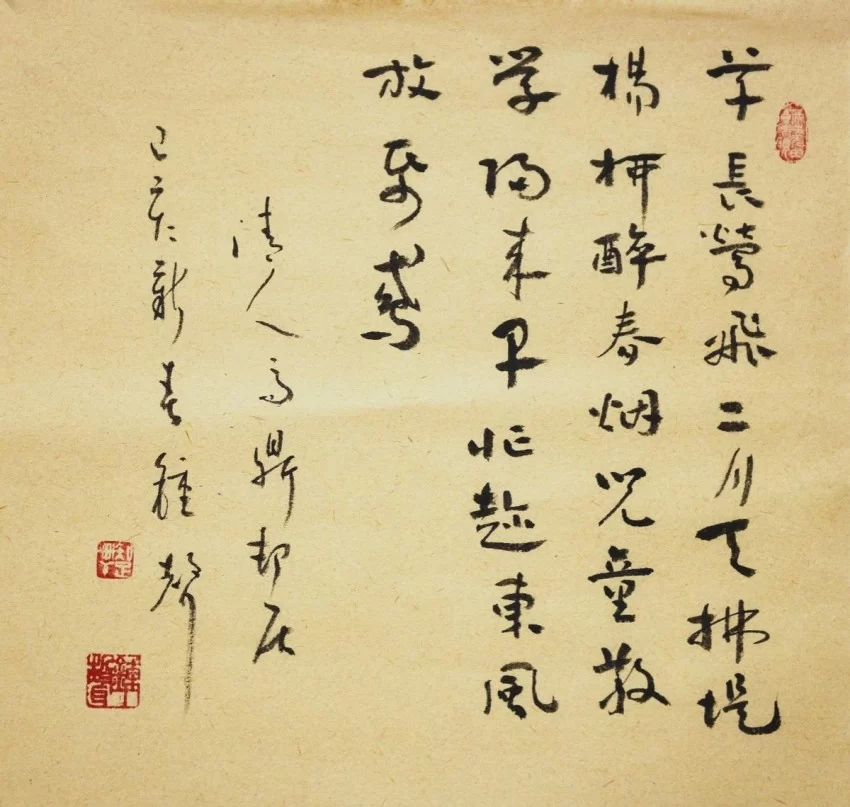 草長鶯飛二月天拂堤
楊柳醉春烟兒童散
学歸来早忙趁東風
放紙鳶
清人高鼎邨居
己亥新春鍾聲